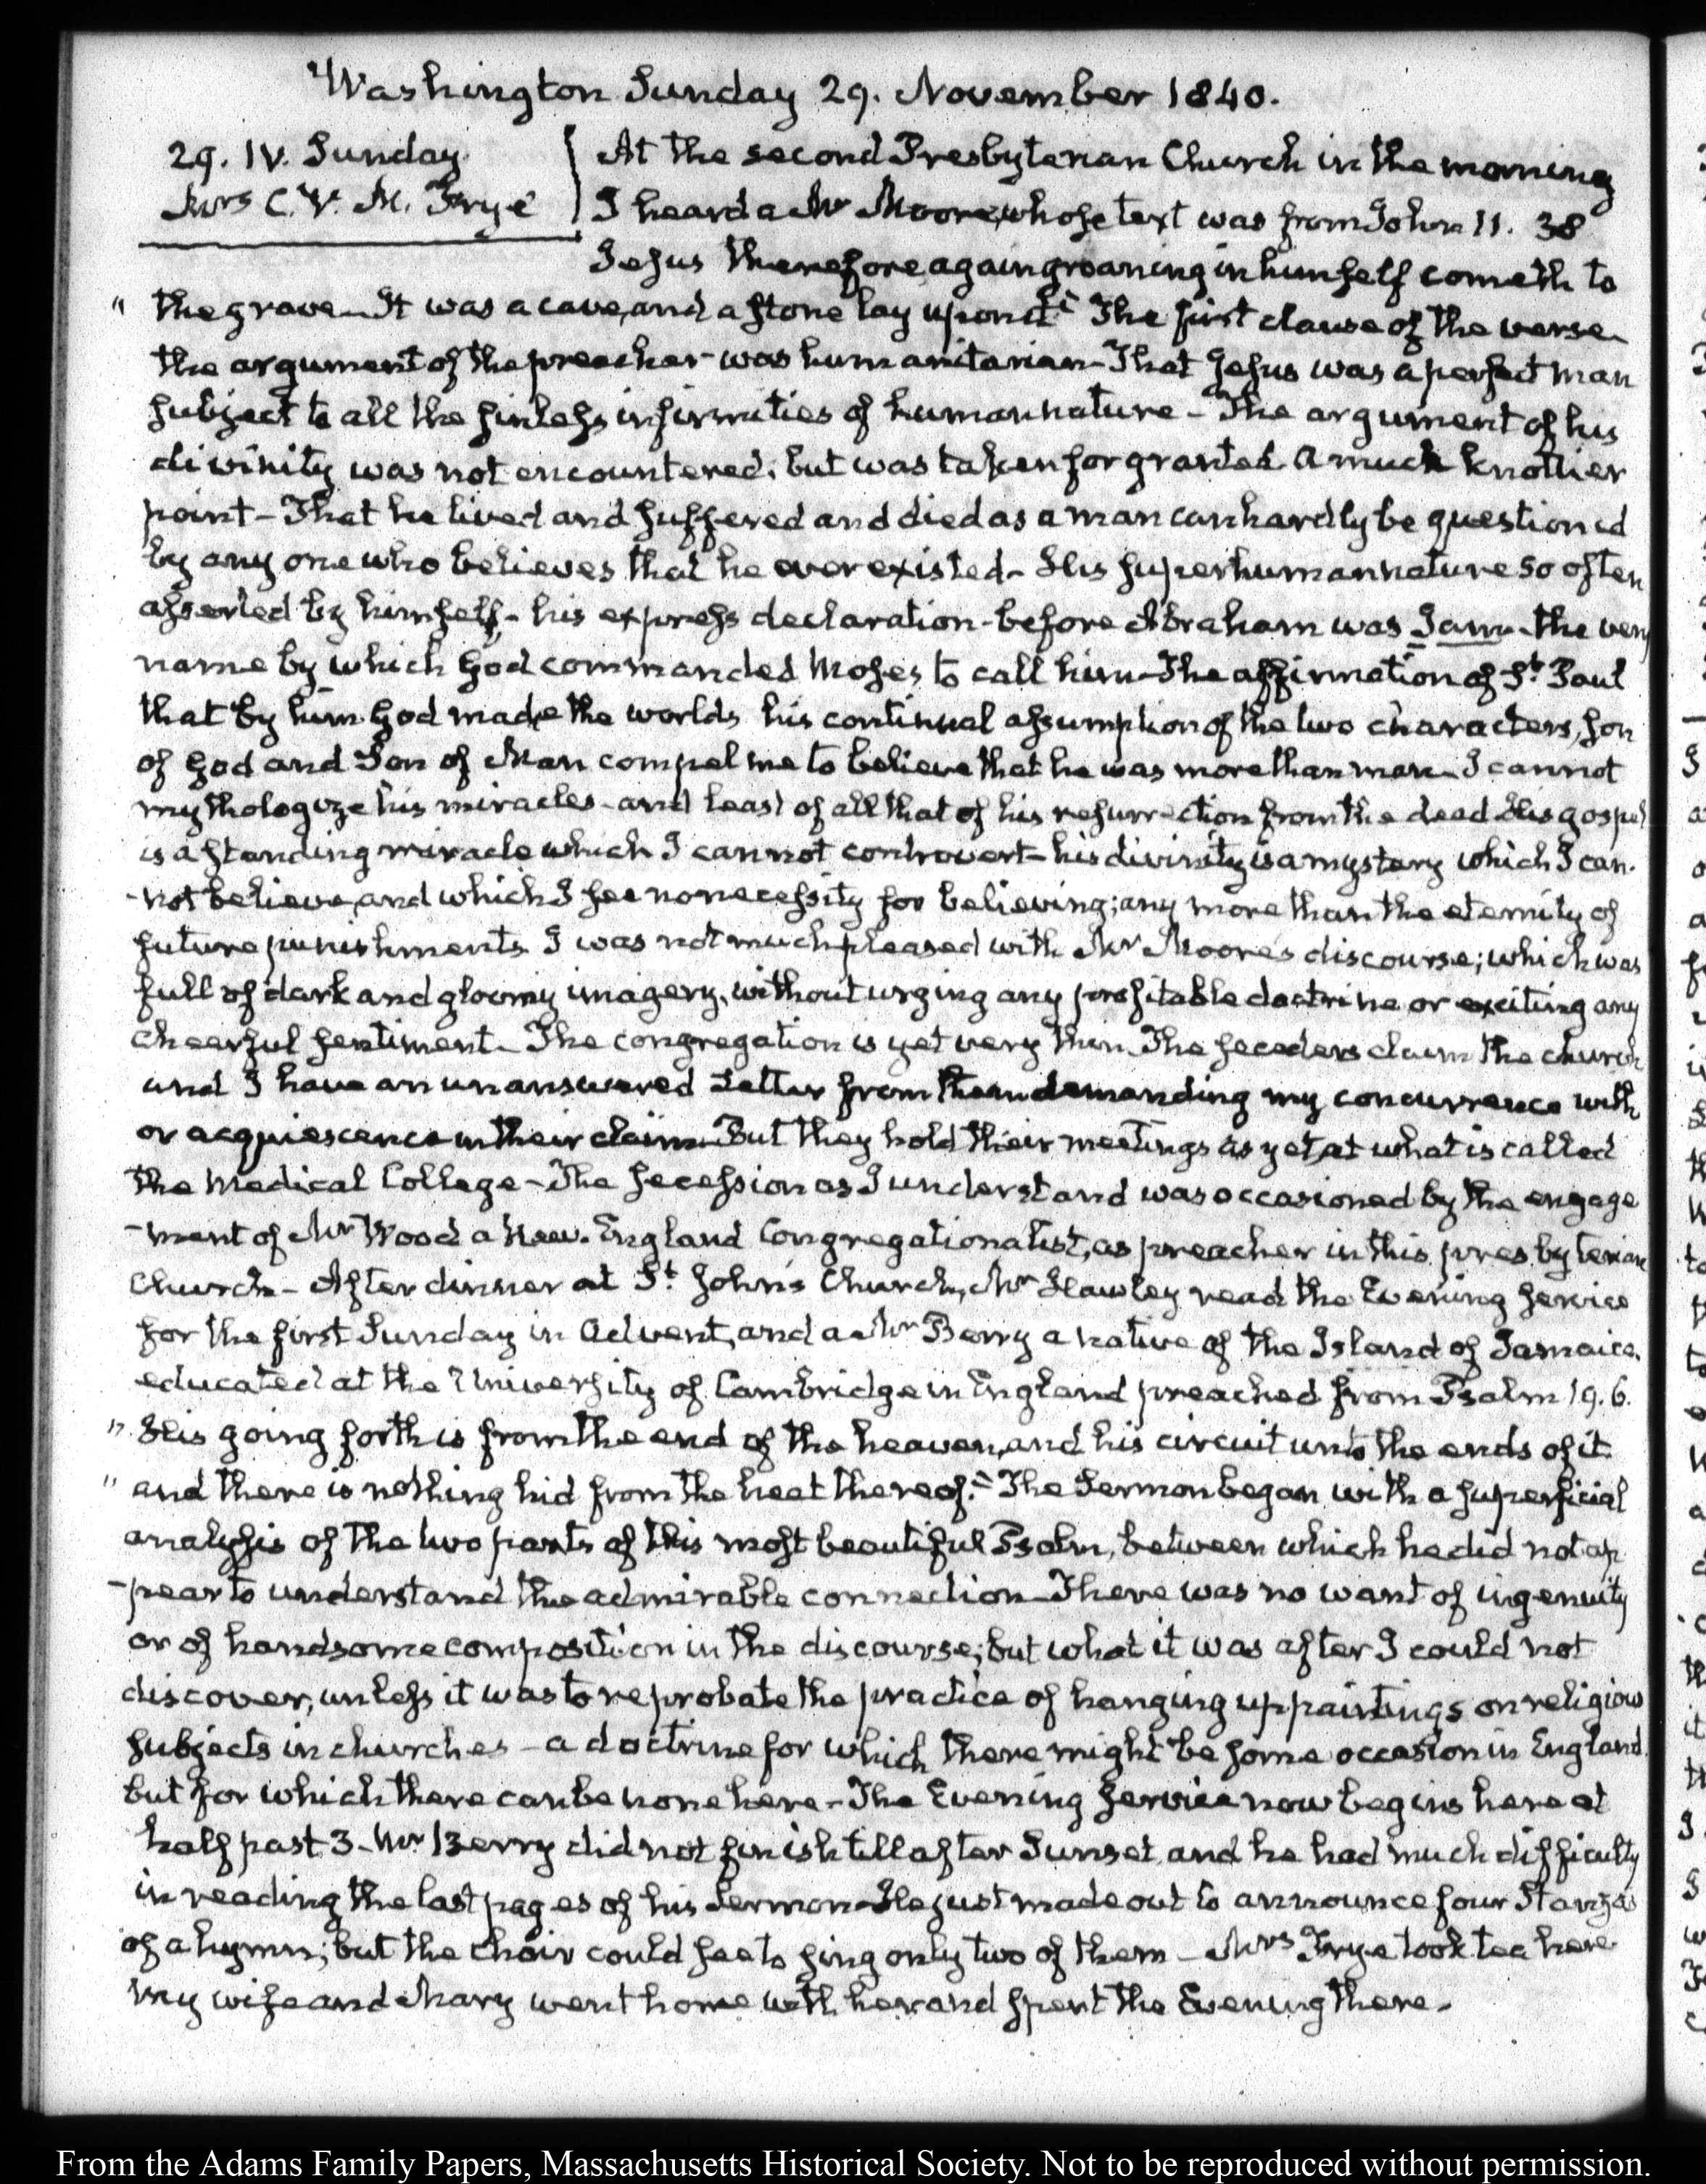 Washington Sunday 29. November 1840.
29. IV. Sunday
Mrs C. V. M. Frye
At the second Presbyterian Church in the morning
I heard a Mr Moore, whose text was from John 11. 38
Jesus therefore again groaning in himself cometh to
" the grave. It was a cave, and a stone lay upon it" The first clause of the verse
the argument of the preacher was humanitarian—That Jesus was a perfect man
subject to all the sinless infirmities of human nature—The argument of his
divinity was not encountered, but was taken for granted. A much knottier
point—That he lived and suffered and died as a man can hardly be questioned
by any one who believes that he ever existed—His superhuman nature so often
asserted by himself—his express declaration—before Abraham was I am—the very
name by which God commanded Moses to call him—The affirmation of St. Paul
that by him God made the worlds his continual assumption of the two characters, son
of God and Son of Man compel me to believe that he was more than man—I cannot
mythologize his miracles—and least of all that of his resurrection from the dead. His gospel
is a standing miracle which I cannot controvert—his divinity is a mystery which I can-
-not believe, and which I see no necessity for believing; any more than the eternity of
future punishments. I was not much pleased with Mr Moore's discourse; which was
full of dark and gloomy imagery, without urging any profitable doctrine or exciting any
cheerful sentiment—The congregation is yet very thin. The seceders claim the church
and I have an unanswered Letter from them demanding my concurrence with
or acquiescence in their claim—But they hold their meetings as yet at what is called
the Medical College—The secession as I understand was occasioned by the engage
-ment of Mr Wood a New-England Congregationalist, as preacher in this presbyterian
Church—After dinner at St. John's Church, Mr Hawley read the Evening service
for the first Sunday in Advent, and a Mr Berry a native of the Island of Jamaica.
educated at the University of Cambridge in England preached from Psalm 19. 6.
" His going forth is from the end of the heaven, and his circuit unto the ends of it
" and there is nothing hid from the heat thereof." The Sermon began with a superficial
analysis of the two parts of this most beautiful Psalm, between which he did not ap
-pear to understand the admirable connection—There was no want of ingenuity
or of handsome composition in the discourse; but what it was after I could not
discover, unless it was to reprobate the practice of hanging up paintings on religious
subjects in churches—a doctrine for which there might be some occasion in England
but for which there can be none here—The Evening service now begins here at
half past 3—Mr Berry did not finish till after Sunset, and he had much difficulty
in reading the last pages of his Sermon—He just made out to announce four Stanzas
of a hymn; but the Choir could see to sing only two of them—Mrs Frye took tea here
my wife and Mary went home with her and spent the Evening there.
From the Adams Family Papers, Massachusetts Historical Society. Not to be reproduced without permission.